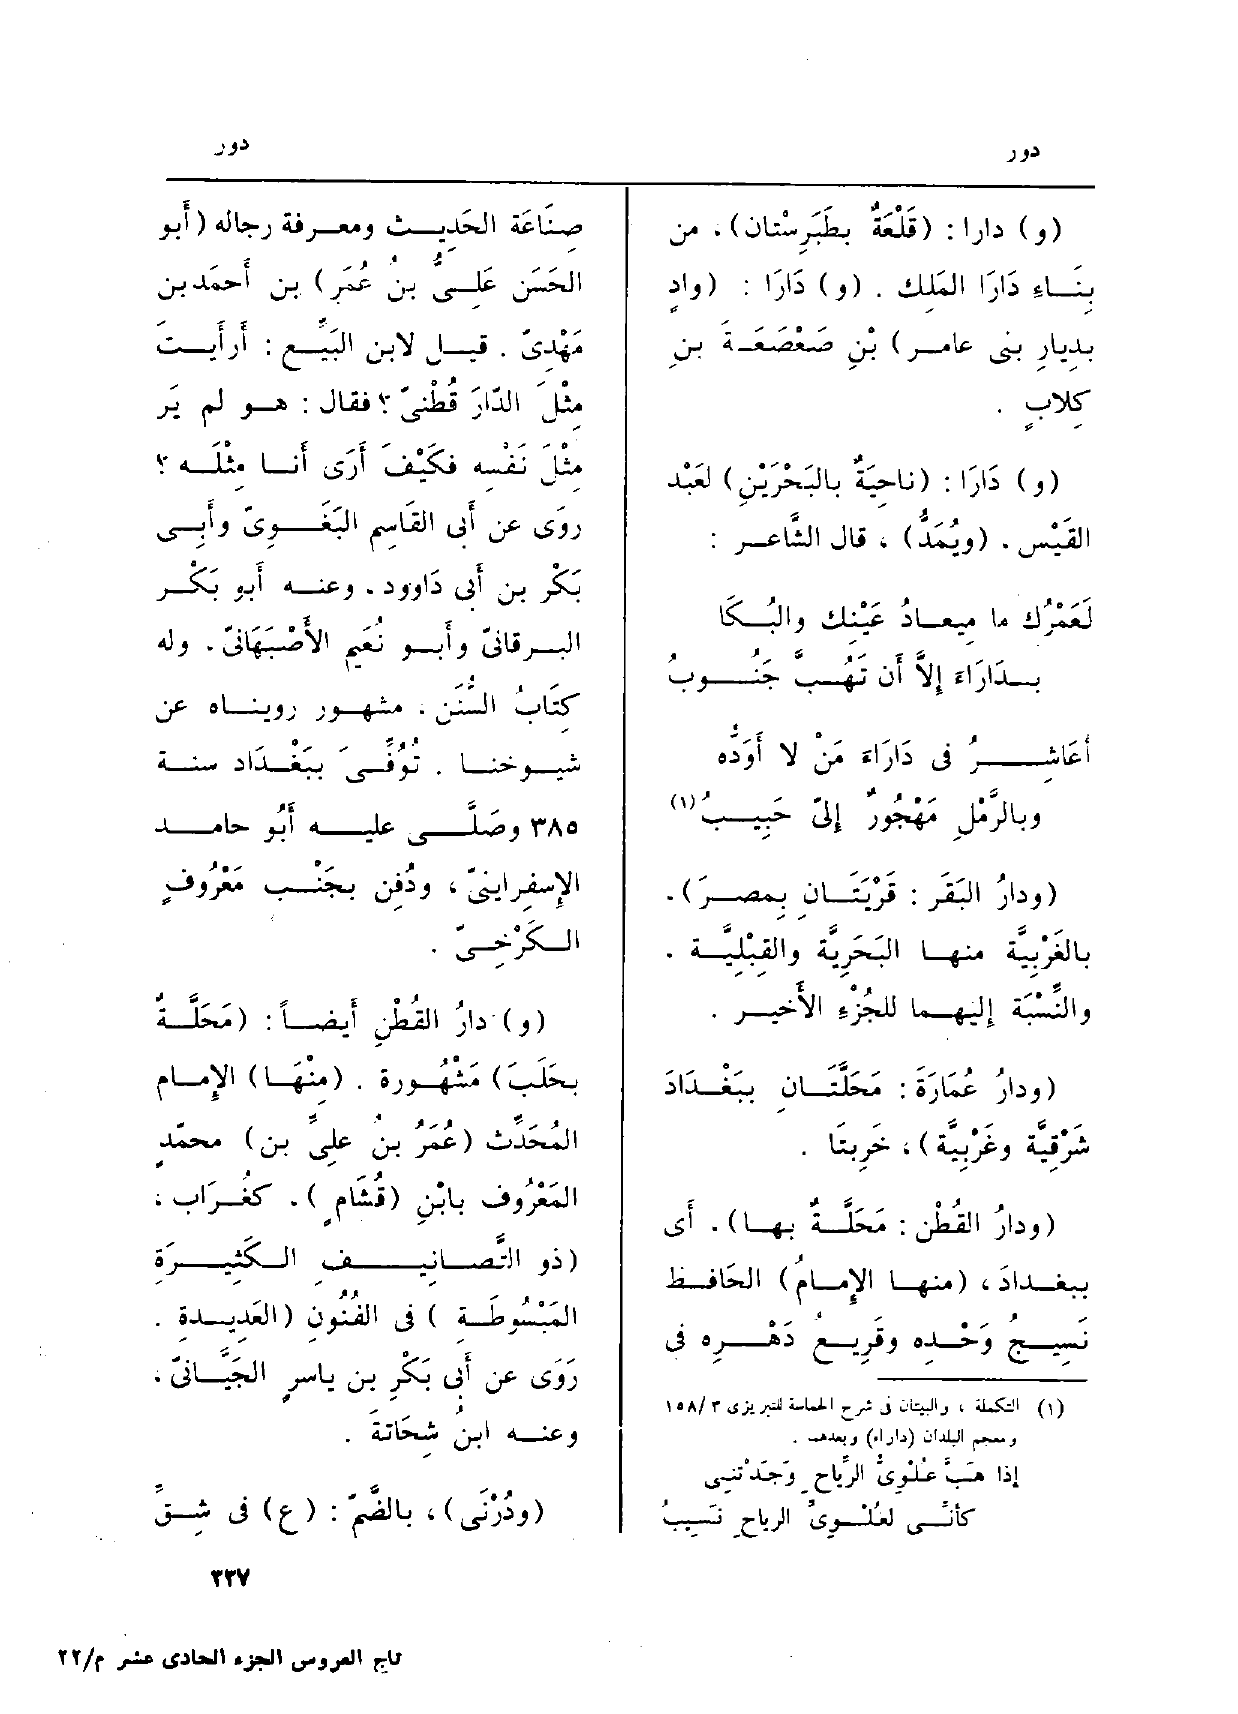 دور
دور
(و) دارا : (قَلْعَةٌ بطَبَرِسْتان)، من
بِنَاءِ دَارَا المَلِك . (و) دَارَا : (وادٍ
بدِيارِ بنى عامر) بْنِ صَعْصَعَةَ بنِ
كِلابٍ .
(و) دَارَا : (ناحِيَةٌ بالبَحْرَيْنِ) لعَبْد
القَيْس . (ويُمَدُّ) ، قال الشَّاعر :
لَعَمْرُك ما مِيعادُ عَيْنِك والبُكَا
بدَارَاءَ إلاَّ أن تَهُبَّ جَنُوبُ
أعَاشِرُ فى دَارَاءَ مَنْ لا أوَدُّه
وبالرَّمْلِ مَهْجُورٌ إلىَّ حَبِيبُ (١)
(ودارُ البَقَر : قَرْيَتَانِ بِمصرَ) .
بالغَرْبِيَّة منها البَحَرِيَّة والقِبْلِيَّة .
والنِّسْبَة إليهما للجُزْءِ الأَخير .
(ودارُ عُمَارَةَ : مَحَلَّتَانِ ببَغْدَادَ
شَرْقِيَّة وغَرْبِيَّة) ، خَرِبتَا .
(ودارُ القُطْن : مَحَلَّةٌ بها) . أى
ببغدادَ ، (منها الإمامُ) الحَافظ
نَسِيجُ وَحْدِه وقَرِيعُ دَهْرِه فى
(١) التكملة ، والبيتان فى شرح الحماسة للتبريزى ٣ /١٥٨
ومعجم البلدان (داراء) وبعدهما .
إذا هَبَّ عُلْوِىُّ الرِّياحِ وَجَدْتُنِى
كأنِّى لعُلْوِىِّ الرياحِ نَسِيبُ
صِنَاعَة الحَدِيث ومعرفة رجاله (أَبو
الحَسَن عَلِىُّ بنُ عُمَر) بن أَحمَد بن
مَهْدِىّ . قيل لابن البَيِّع : أَرأَيتَ
مِثْلَ الدّارَ قُطْنىّ ؟ فقال : هو لم يَر
مِثْلَ نَفْسِه فكَيْفَ أَرَى أَنا مِثْلَه ؟
روَى عن أَبى القَاسِم البَغَوِىّ وأَبى
بَكْر بن أَبى دَاوود . وعنه أَبو بَكْر
البرقانىّ وأَبو نُعَيم الأَصْبَهَانىّ . وله
كِتَابُ السُّنَن . مشهور رويناه عن
شيوخنا . تُوُفِّىَ ببَغْدَاد سنة
٣٨٥ وصَلَّى عليه أَبُو حامد
الإِسفراينىّ ، ودُفِن بجَنْب مَعْرُوفٍ
الكَرْخِىّ .
(و) دارُ القُطْنِ أَيضاً : (مَحَلَّةٌ
بحَلَبَ) مَشْهُورة . (مِنْهَا) الإِمام
المُحَدِّث (عُمَرُ بنُ علىِّ بن) محمّدٍ
المَعْرُوف بابْنِ (قُشَامٍ) . كغُرَاب ،
(ذو التَّصانِيف الكَثِيرَةِ
المَبْسُوطَة ) فى الفُنُونِ (العَدِيدةِ .
رَوَى عن أَبى بَكْرِ بن ياسرٍ الجَيَّانىّ ،
وعنه ابنُ شحَاتةَ .
(ودُرْنَى) ، بالضَّمّ : (ع) فى شِقِّ
٣٣٧
تاج العروس الجزء الحادى عشر م/٢٢